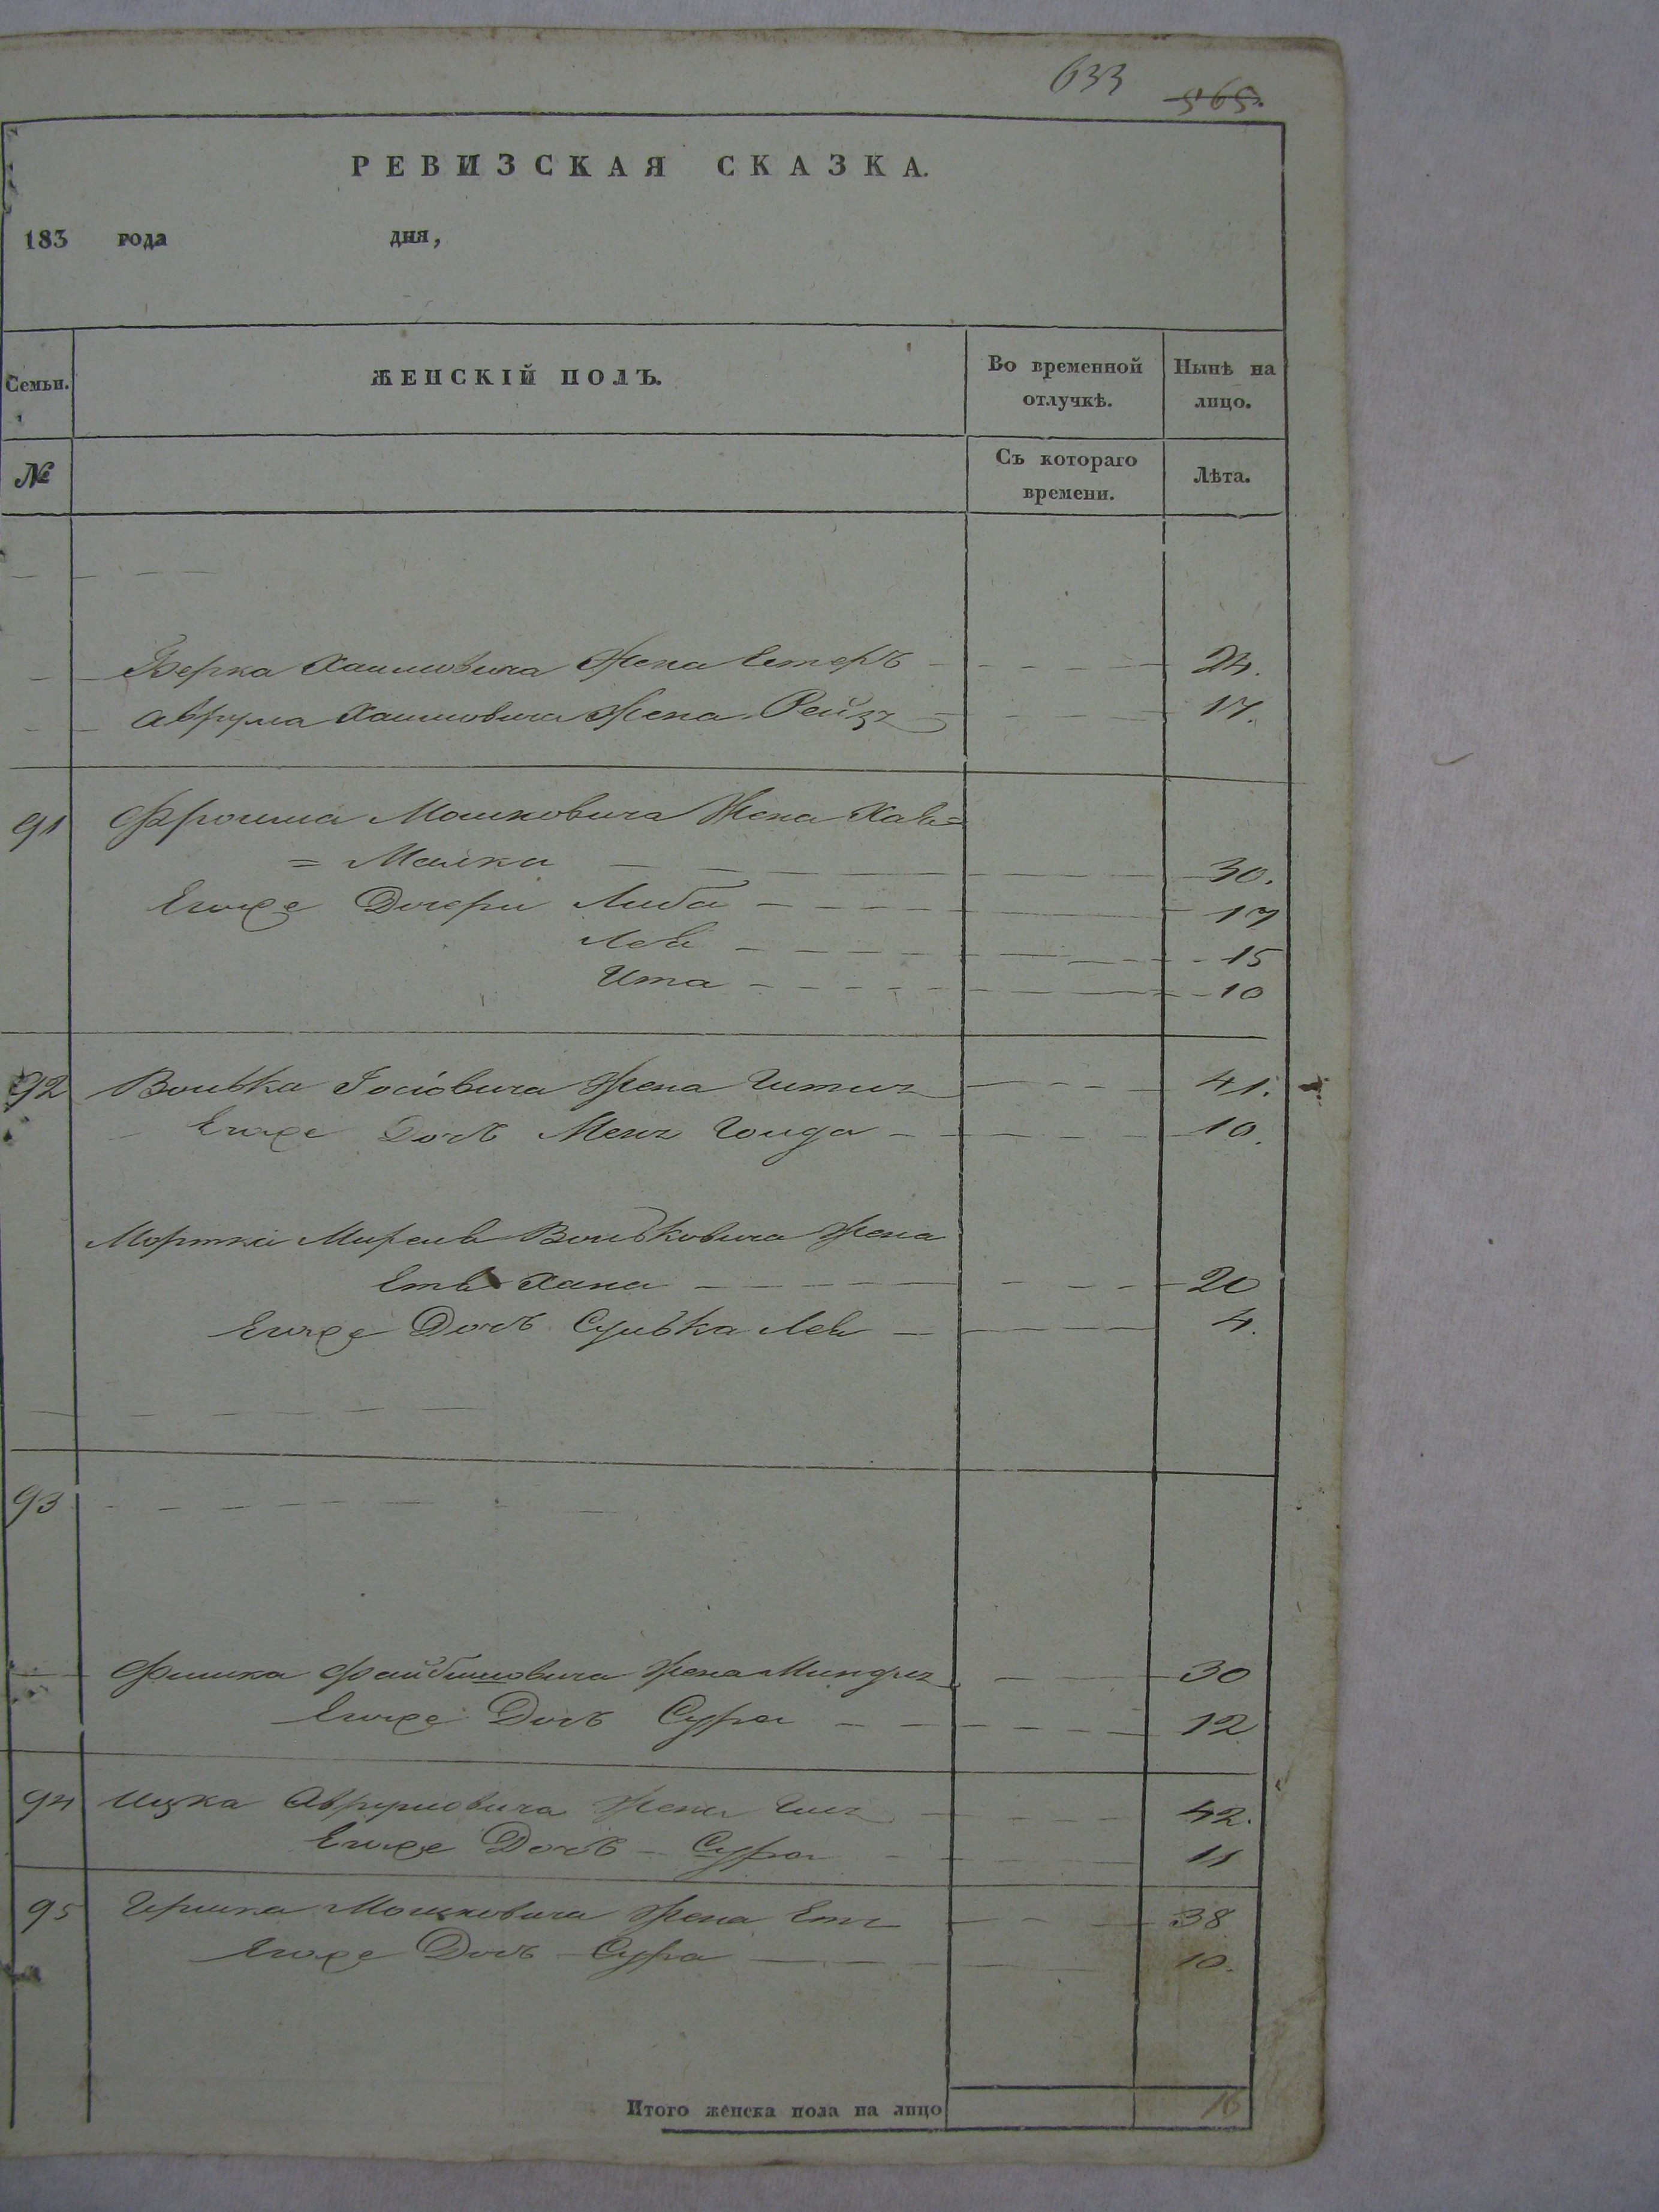 633 565.
РЕВИЗСКАЯ СКАЗКА.
183 года дня,
Семьи. ЖЕНСКІЙ ПОЛЪ. Во временной отлучкѣ. Нынѣ на лицо.
№ Съ котораго времени. Лѣта.
Берка Хаимовича Жена Естеръ 24.
Аврума Хаимовича Жена Рейзя 17.
91 Фроима Мошковича Жена Хая=
= Малка 30.
Егоже Дочери Либа 17
Лея 15
Ита 10
92 Волька Іосіовича Жена 41.
Егоже Дочь Меня Голда 10.
Мортка Вольковича Жена
Етя Хана 20
Егоже Дочь Сулька Лея 4.
93
Фишка Файбишовича Жена Миндля 30
Егоже Дочь Сура 12
94 Ицка Аврумовича Жена 42.
Егоже Дочь Сура 11
95 Гершка Мошковича Жена Етя 38
Егоже Дочь Сура 10.
Итого женска пола на лицо 16